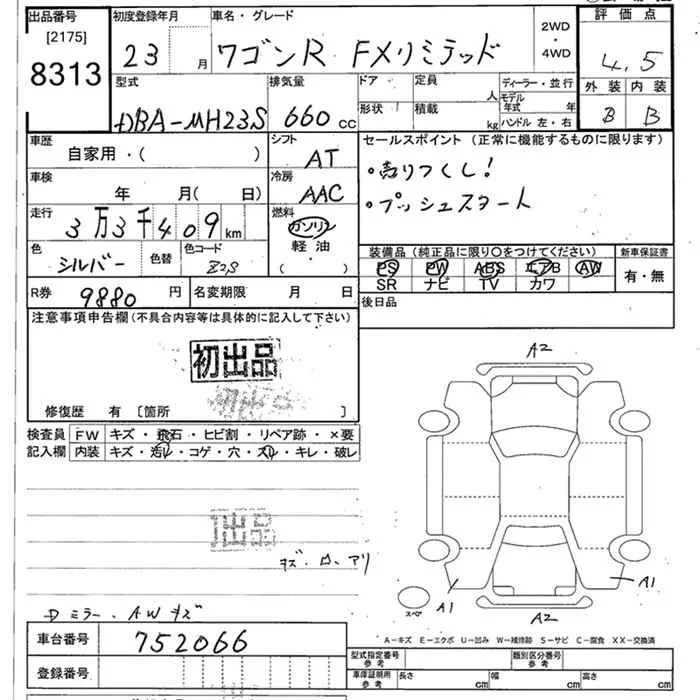 出品番号 初度登録年月 車名・グレード 2WD ・ 4WD 評価点
[2175]
8313 23 月 ワゴンR FXリミテッド 4.5
型式 排気量 ドア 定員 人 ディーラー・並行 外装 内装
DBA-MH23S 660 cc 形状 積載 kg モデル年式 年 B B
ハンドル 左・右
車歴 シフト セールスポイント (正常に機能するものに限ります)
自家用・( ) AT ・売りつくし!
車検 冷房
年 月( 日) AAC ・プッシュスタート
走行 燃料
3万3千409km ガソリン
色 色替 色コード 軽油 装備品 (純正品に限り○をつけてください) 新車保証書
シルバー Z2S ( ) PS PW ABS エアB AW 有・無
SR ナビ TV カワ
R券 9880 円 名変期限 月 日 後日品
注意事項申告欄 (不具合内容等は具体的に記入して下さい)
初出品
A2
修復歴 有 [箇所 ]
検査員 FW キズ・飛石・ヒビ割・リペア跡・×要
記入欄 内装 キズ・汚レ・コゲ・穴・スレ・キレ・破レ
初出品
A1
スペア A1
A2
Dミラー・AWキズ
A-キズ E-エクボ U-凹み W-補修跡 S-サビ C-腐食 XX-交換済
車台番号 752066
型式指定番号 参考 類別区分番号 参考
登録番号 車庫証明用 参考 長さ cm 幅 cm 高さ cm